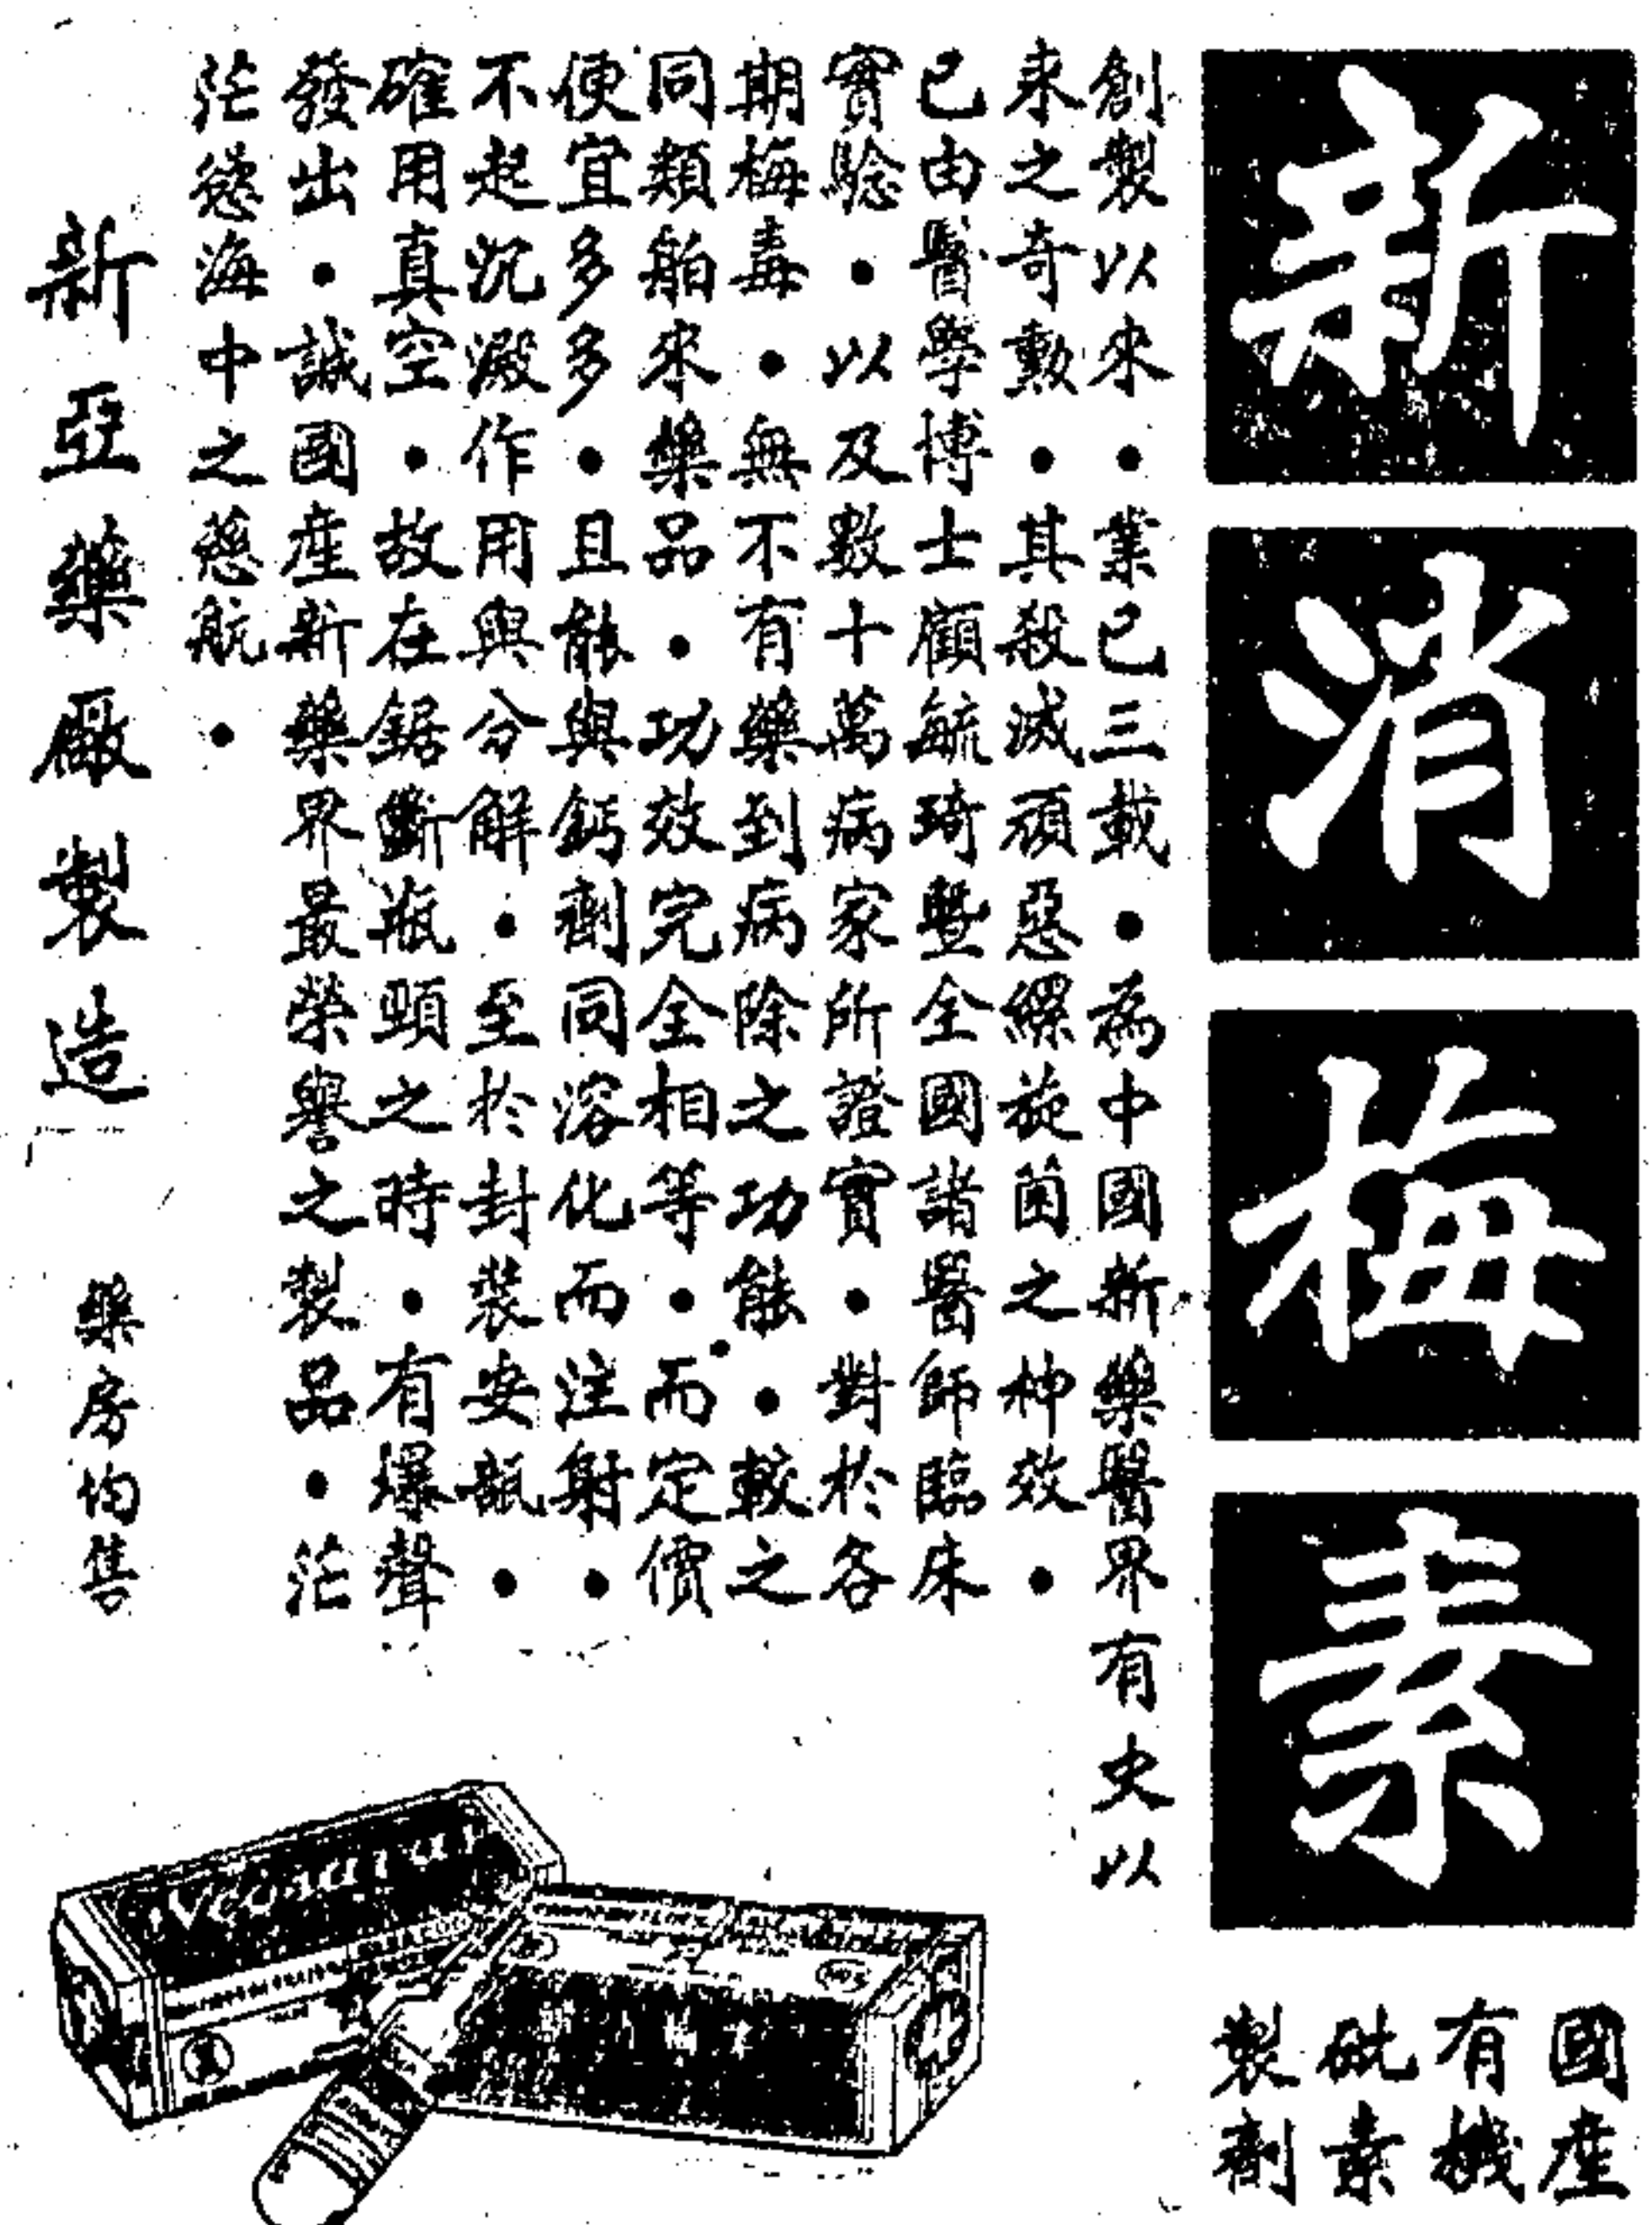 新消梅素
國產
有機
砒素
製劑
創製以來・業已三載・為中國新藥醫界有史以
來之奇勲・其殺滅頑惡螺旋菌之神效・
已由醫學博士顧毓琦暨全國諸醫師臨床
實驗・以及數十萬病家所證實・對於各
期梅毒・無不有藥到病除之功能・較之
同類舶來藥品・功效完全相等・而定價
便宜多多・且能與鈣劑同溶化而注射・
不起沉澱作用與分解・至於封裝安瓿・
確用真空・故在鋸斷瓶頸之時・有爆聲
發出・誠國產新藥界最榮譽之製品・茫
茫慾海中之慈航・
新亞藥廠製造
藥房均售